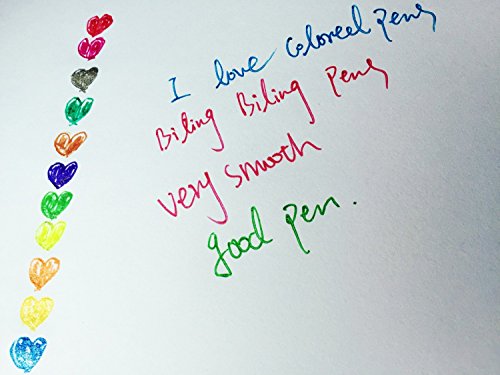 I love Colored Pens
Biling Biling Pens
very smooth
good pen.